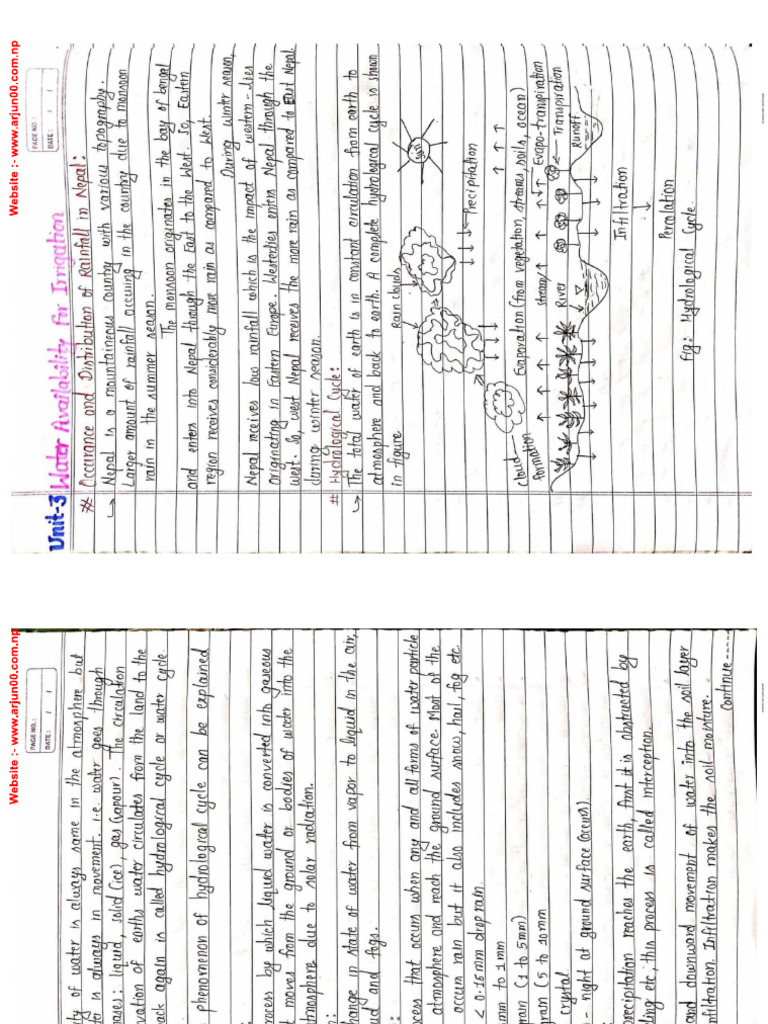 Website :- www.arjun00.com.np
PAGE NO.:
DATE: / /
Unit-3 Water Availability for Irrigation
# Occurance and Distribution of Rainfall in Nepal:
→ Nepal is a mountaineous country with various topography.
Larger amount of rainfall occuring in the country due to monsoon
rain in the summer season.
The monsoon originates in the bay of bengal
and enters into Nepal through the East to the West. So, Eastern
region receives considerably more rain as compared to West.
During winter season,
Nepal receives low rainfall which is the impact of western-lies
originating in Eastern Europe. Westerdies enters Nepal through the
west. So, west Nepal receives the more rain as compared to East Nepal
during winter season.
# Hydrological Cycle:
→ The total water of earth is in constant circulation from earth to
atmosphere and back to earth. A complete hydrological cycle is shown
in figure
Rain clouds
sun
Precipitation
cloud
formation
Evaporation (from vegetation, streams, soils, ocean)
stream/
River
Evapo-transpiration
Transpiration
Runoff
Infiltration
Percalation
Fig: Hydrological Cycle
Website :- www.arjun00.com.np
PAGE NO.:
DATE: / /
ty of water is always same in the atmosphere but
is always in movement. i.e. water goes through
ases: liquid, solid (ice), gas (vapour). The circulation
vation of earths water circulates from the land to the
ack again is called hydrological cycle or water cycle
phenomenon of hydrological cycle can be explained
rocess by which liquid water is converted into gaseous
t moves from the ground or bodies of water into the
tmosphere due to solar radiation.
hange in state of water from vapor to liquid in the air,
ud and fogs.
cess that occurs when any and all forms of water particle
atmosphere and reach the ground surface. Most of the
occurs rain but it also includes snow, hail, fog etc.
< 0.15mm drop rain
mm to 1mm
gram (1 to 5mm)
gram (5 to 10mm
crystal.
- night at ground surface (occurs)
recipitation reaches the earth, first it is obstructed by
ling etc, this process is called interception.
and downward movement of water into the soil layer
nfiltration. Infiltration makes the soil moisture.
Continue ----